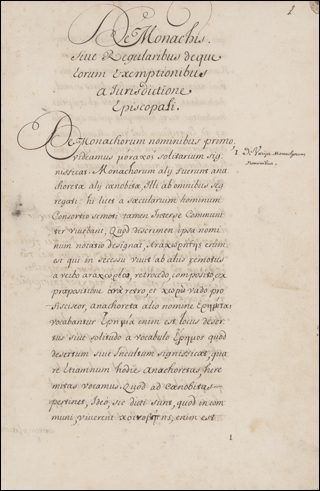 1
De Monachis.
siue Regularibus deque
eorum exemptionibus
a Iurisdictione
Episcopali.
De Monachorum nominibus primo
videamus μοραχος solitarum sig
nisticat. Monachorum alij fuerunt ana
choretæ alij cænobitæ, Illi ab omnibus seg
regati hi licet a sæcularium hominum
Consortio semoti tamen Interse Communi
ter viuebant, Quod discrimen ipsa nomi
num notatio designat, ἀναχωρητής enim
est qui in secessu viuit ab alijs remotus
a verbo αναχωρέω, retrocedo composito ex
præpositione ἀνὰ retro et χωρῶ vado pro
ficiscor, anachoretæ alio nomine Ερημιται
vocabantur Ερημια enim est locus deser
tus siue solitudo a vocabulo Ερημος quod
desertum siue Incultum significat, qua
re Latinium hodie Anachoretas, here
mitas vocamus. Quod ad cænobitas
pertinet, Ideo, sic dicti sunt, quod in com
muni viuerent κοινοβιης, enim est
1 De Varijs Monachorum
nominibus.
1